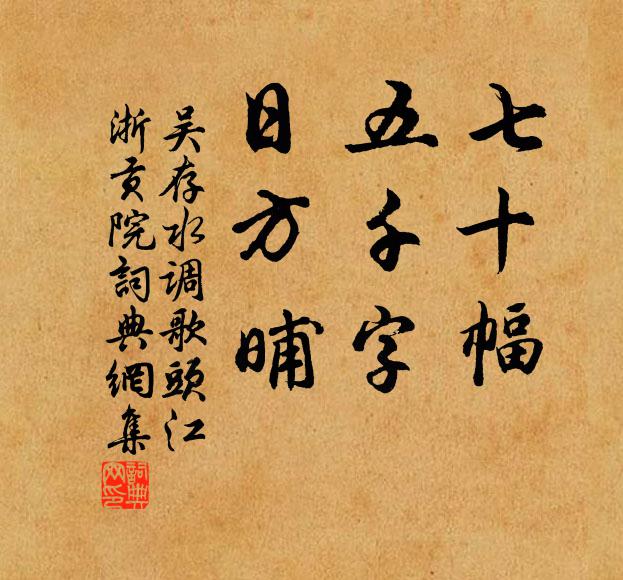 七十幅
五千字
日方晡
吴存水调歌頭江
浙貢院詞典網集
詞典
网印